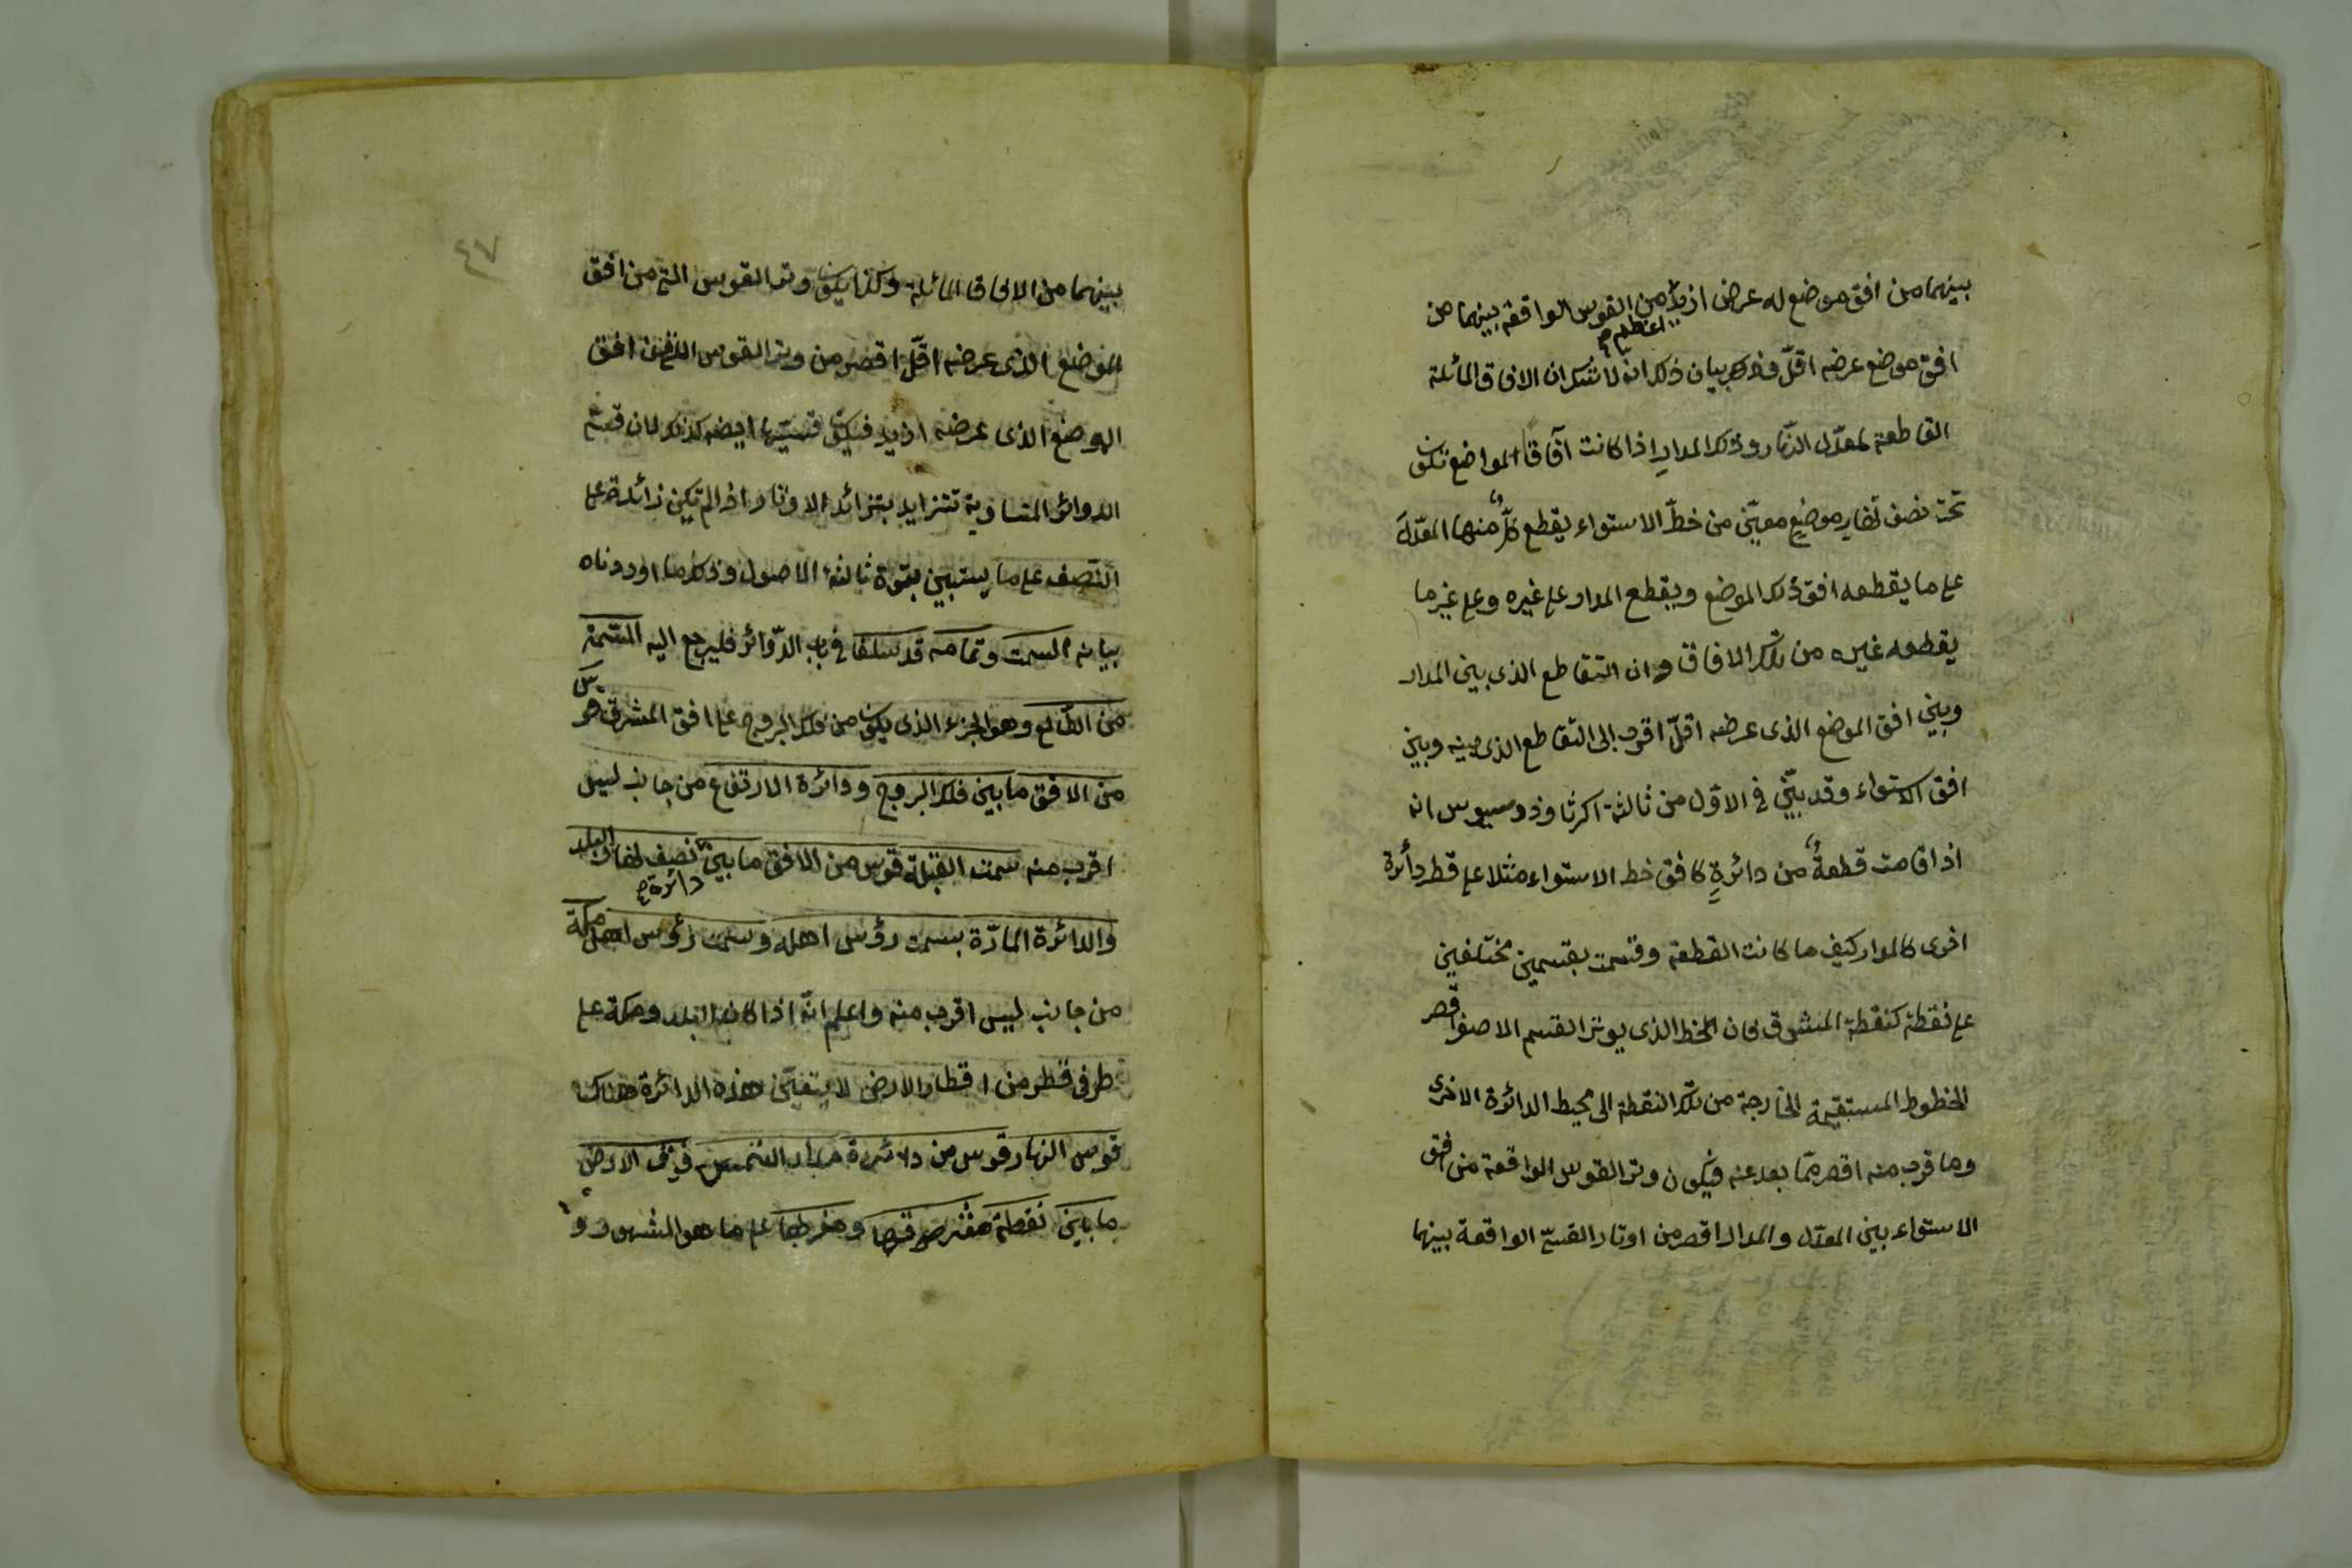 بينهما من افق موضع له عرض ازيد من القوس الواقعة بينهما من
اعظم صح
افق موضع عرضه اقلّ وذكر بيان ذلك انه لا شك ان الافاق المائلة
القاطعة لمعدّل النهار وذلك المدار اذا كانت آفاقا لمواضع تكون
تحت نصف نهار موضع معيّن من خطّ الاستواء يقطع كلّ منها المعدّل
على ما يقطعه افق ذلك الموضع ويقطع المدار على غيره وعلى غير ما
يقطعه غيره من تلك الافاق وان التقاطع الذى بين المدار
وبين افق الموضع الذى عرضه اقلّ اقرب الى التقاطع الذى بينه وبين
افق الاستواء وقد بيّن فى الاوّل من ثالثة اكر ثاوذوسيوس انه
اذا قامت قطعة من دائرة كافق خط الاستواء مثلا على قطر دائرة
اخرى كالمدار كيف ما كانت القطعة وقسمت بقسمين مختلفين
على نقطة كنقطة المشرق كان الخط الذى يوتر القسم الاصغر اقصر
الخطوط المستقيمة الخارجة من تلك النقطة الى محيط الدائرة الاخرى
وما قرب منه اقصر ممّا بعد عنه فيكون وتر القوس الواقعة من افق
الاستواء بين المعدّل والمدار اقصر من اوتار القسىّ الواقعة بينهما
٤٧
بينهما من الافاق المائلة وكذا يكون وتر القوس التى من افق
الموضع الذى عرضه اقلّ اقصر من وتر القوس التى من افق
الموضع الذى عرضه ازيد فيكون قسيّها ايضا كذلك لان قسى
الدوائر المتساوية تتزايد بتزائد الاوتار اذا لم تكن زائدة على
النصف على ما يستبين بقوة ثالثة الاصول وذكر ما اوردناه
بيانه السمت وتمامه قد سلفا فى باب الدّوائر فليرجع اليه السمت
من الطالع وهو الجزء الذى يكون من فلك البروج على افق المشرق هو قوس
من الافق ما بين فلك البروج ودائرة الارتفاع من جانب ليس
اقرب منه سمت القبلة قوس من الافق ما بين نصف نهار البلد
دائرة صح
والدائرة المارّة بسمت رؤس اهله وسمت رؤس اهل مكة
من جانب ليس اقرب منه واعلم انّه اذا كان البلد ومكة على
طرفى قطر من اقطار الارض لا يتعيّن هذه الدائرة هناك
قوس النهار قوس من دائرة مدار الشمس فوق الارض
ما بين نقطة مشرقها ومغربها على ما هو المشهور و